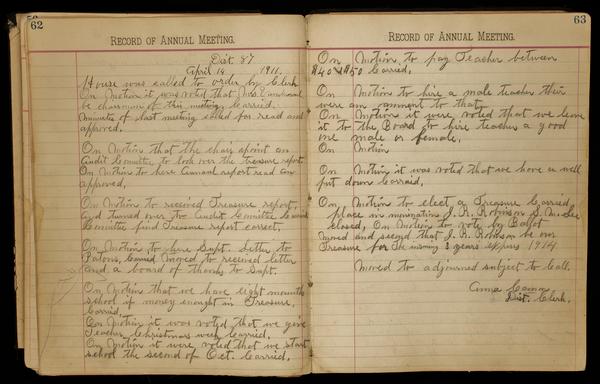 62
RECORD OF ANNUAL MEETING.
Dist. 87
April 14 1911.
House was called to order by Clerk
On Motion it was voted that Mr
be chairman of this meeting Carried.
Minutes of last meeting called for read and
approved.
On Motion that the chair apoint an
Audit Committee to look over the treasure report
On Motion to here Annual report read an
approved,
On Motion to received Treasure report,
and turned over to Audit Committee
Committee find Treasure report correct,
On Motion to here Supt. Letter to
Patons, Carried Moved to received letter
and a board of thanks to Supt.
On Motion that we have eight mounths
school if money enought in Treasure,
Carried,
On Motion it was voted that we give
Teacher Christmas week Carried.
On Motion it were voted that we start
school the second of Oct. Carried.
63
RECORD OF ANNUAL MEETING.
On Motion to pay Teacher between
$40 $50 Carried.
On Motion to hire a male teacher their
were am to that,
On Motion it were voted that we leave
it to the Board to hire teacher a good
one male or female,
On Motion
On Motion it was voted that we have a well
put down Carraid.
On Motion to elect a Treasure Carried
place in nominating J. R. Robinson S. M. Lee
closed, On Motion to vote by Ballot
Moved and second that J. R. Robinson be our
Treasure for the insuing 3 years expires 1914
Moved to adjourned subject to Call.
Anna
Dist. Clerk.